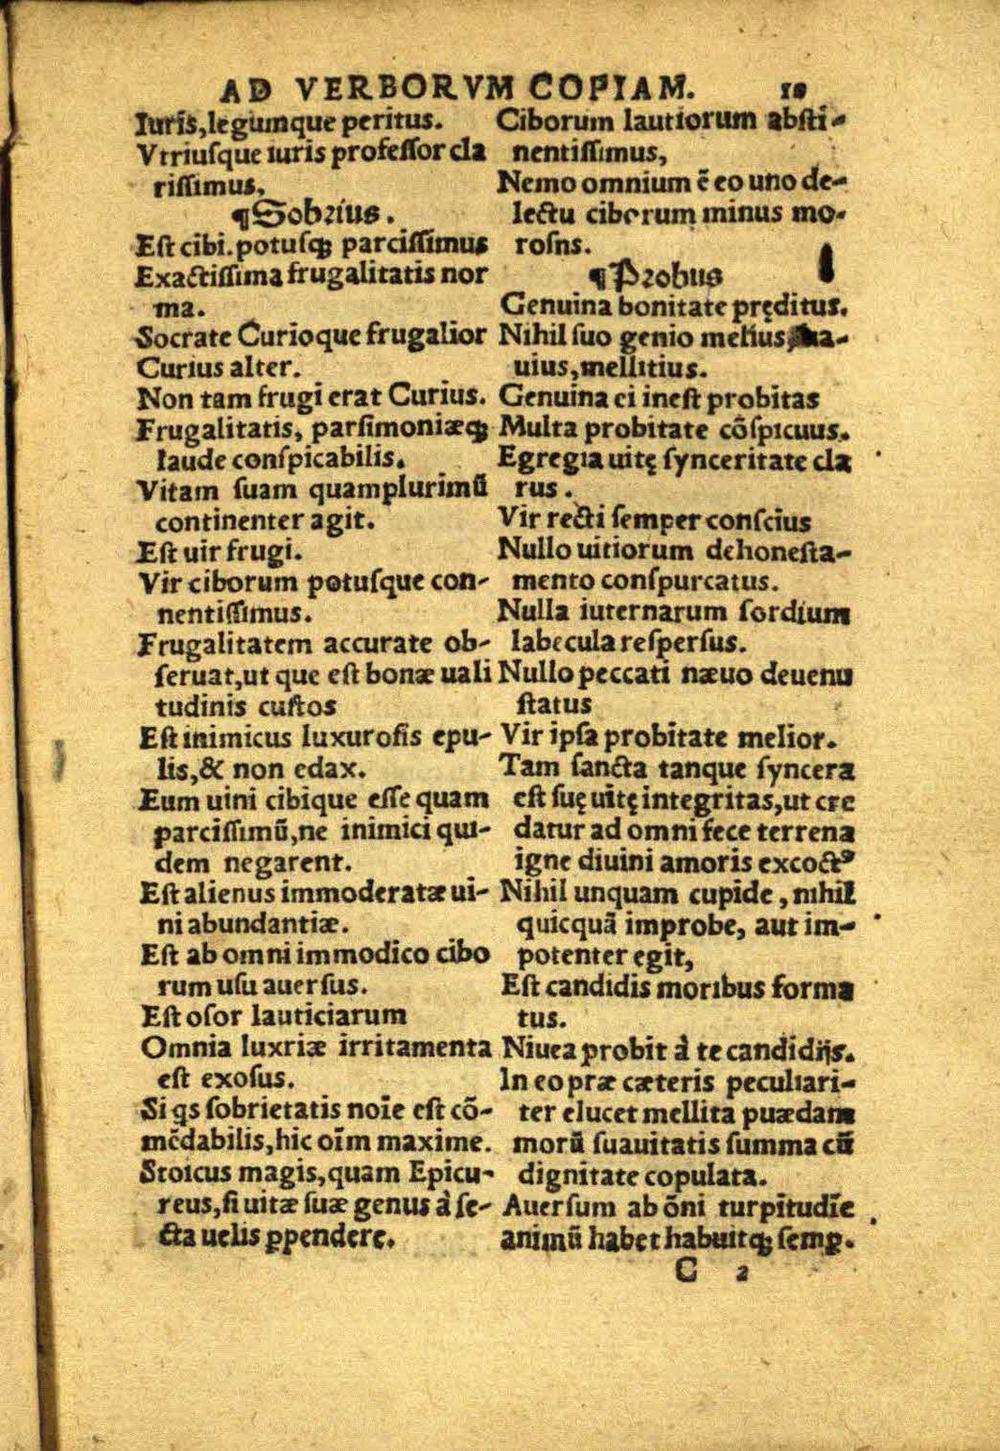 AD VERBORVM COPIAM. 10
Iuris,legumque peritus.
Vtriuſque iuris profeſſor cla
riſſimus.
¶Sobrius.
Eſt cibi.potuſqꝫ parciſſimus
Exactiſſima frugalitatis nor
ma.
Socrate Curioque frugalior
Curius alter.
Non tam frugi erat Curius.
Frugalitatis, parſimoniæqꝫ
laude conſpicabilis.
Vitam ſuam quamplurimũ
continenter agit.
Eſt uir frugi.
Vir ciborum potuſque con-
nentiſſimus.
Frugalitatem accurate ob-
ſeruat,ut que eſt bonæ uali
tudinis cuſtos
Eſt inimicus luxuroſis epu-
lis,& non edax.
Eum uini cibique eſſe quam
parciſſimũ,ne inimici qui-
dem negarent.
Eſt alienus immoderatæ ui-
ni abundantiæ.
Eſt ab omni immodico cibo
rum uſu auerſus.
Eſt oſor lauticiarum
Omnia luxriæ irritamenta
eſt exoſus.
Si qs ſobrietatis noĩe eſt cõ-
mẽdabilis,hic oĩm maxime.
Stoicus magis,quam Epicu-
reus,ſi uitæ ſuæ genus à ſe-
cta uelis ꝑpendere.
Ciborum lautiorum abſti-
nentiſſimus,
Nemo omnium ẽ eo uno de-
lectu ciborum minus mo-
roſns.
¶Probus
Genuina bonitate pręditus.
Nihil ſuo genio melius,
uius,mellitius.
Genuina ei ineſt probitas
Multa probitate cõſpicuus.
Egregia uitę ſynceritate cla
rus.
Vir recti ſemper conſcius
Nullo uitiorum dehoneſta-
mento conſpurcatus.
Nulla iuternarum ſordium
labecula reſperſus.
Nullo peccati næuo deuenu
ſtatus
Vir ipſa probitate melior.
Tam ſancta tanque ſyncera
eſt ſuę uitę integritas,ut cre
datur ad omni fece terrena
igne diuini amoris excoctꝰ
Nihil unquam cupide, nihil
quicquã improbe, aut im-
potenter egit,
Eſt candidis moribus forma
tus.
Niuea probit à te candidijs.
In eo præ cæteris peculiari-
ter elucet mellita puædam
morũ ſuauitatis ſumma cũ
dignitate copulata.
Auerſum ab õni turpitudĩe
animũ habet habuitqꝫ ſemꝑ.
C 2